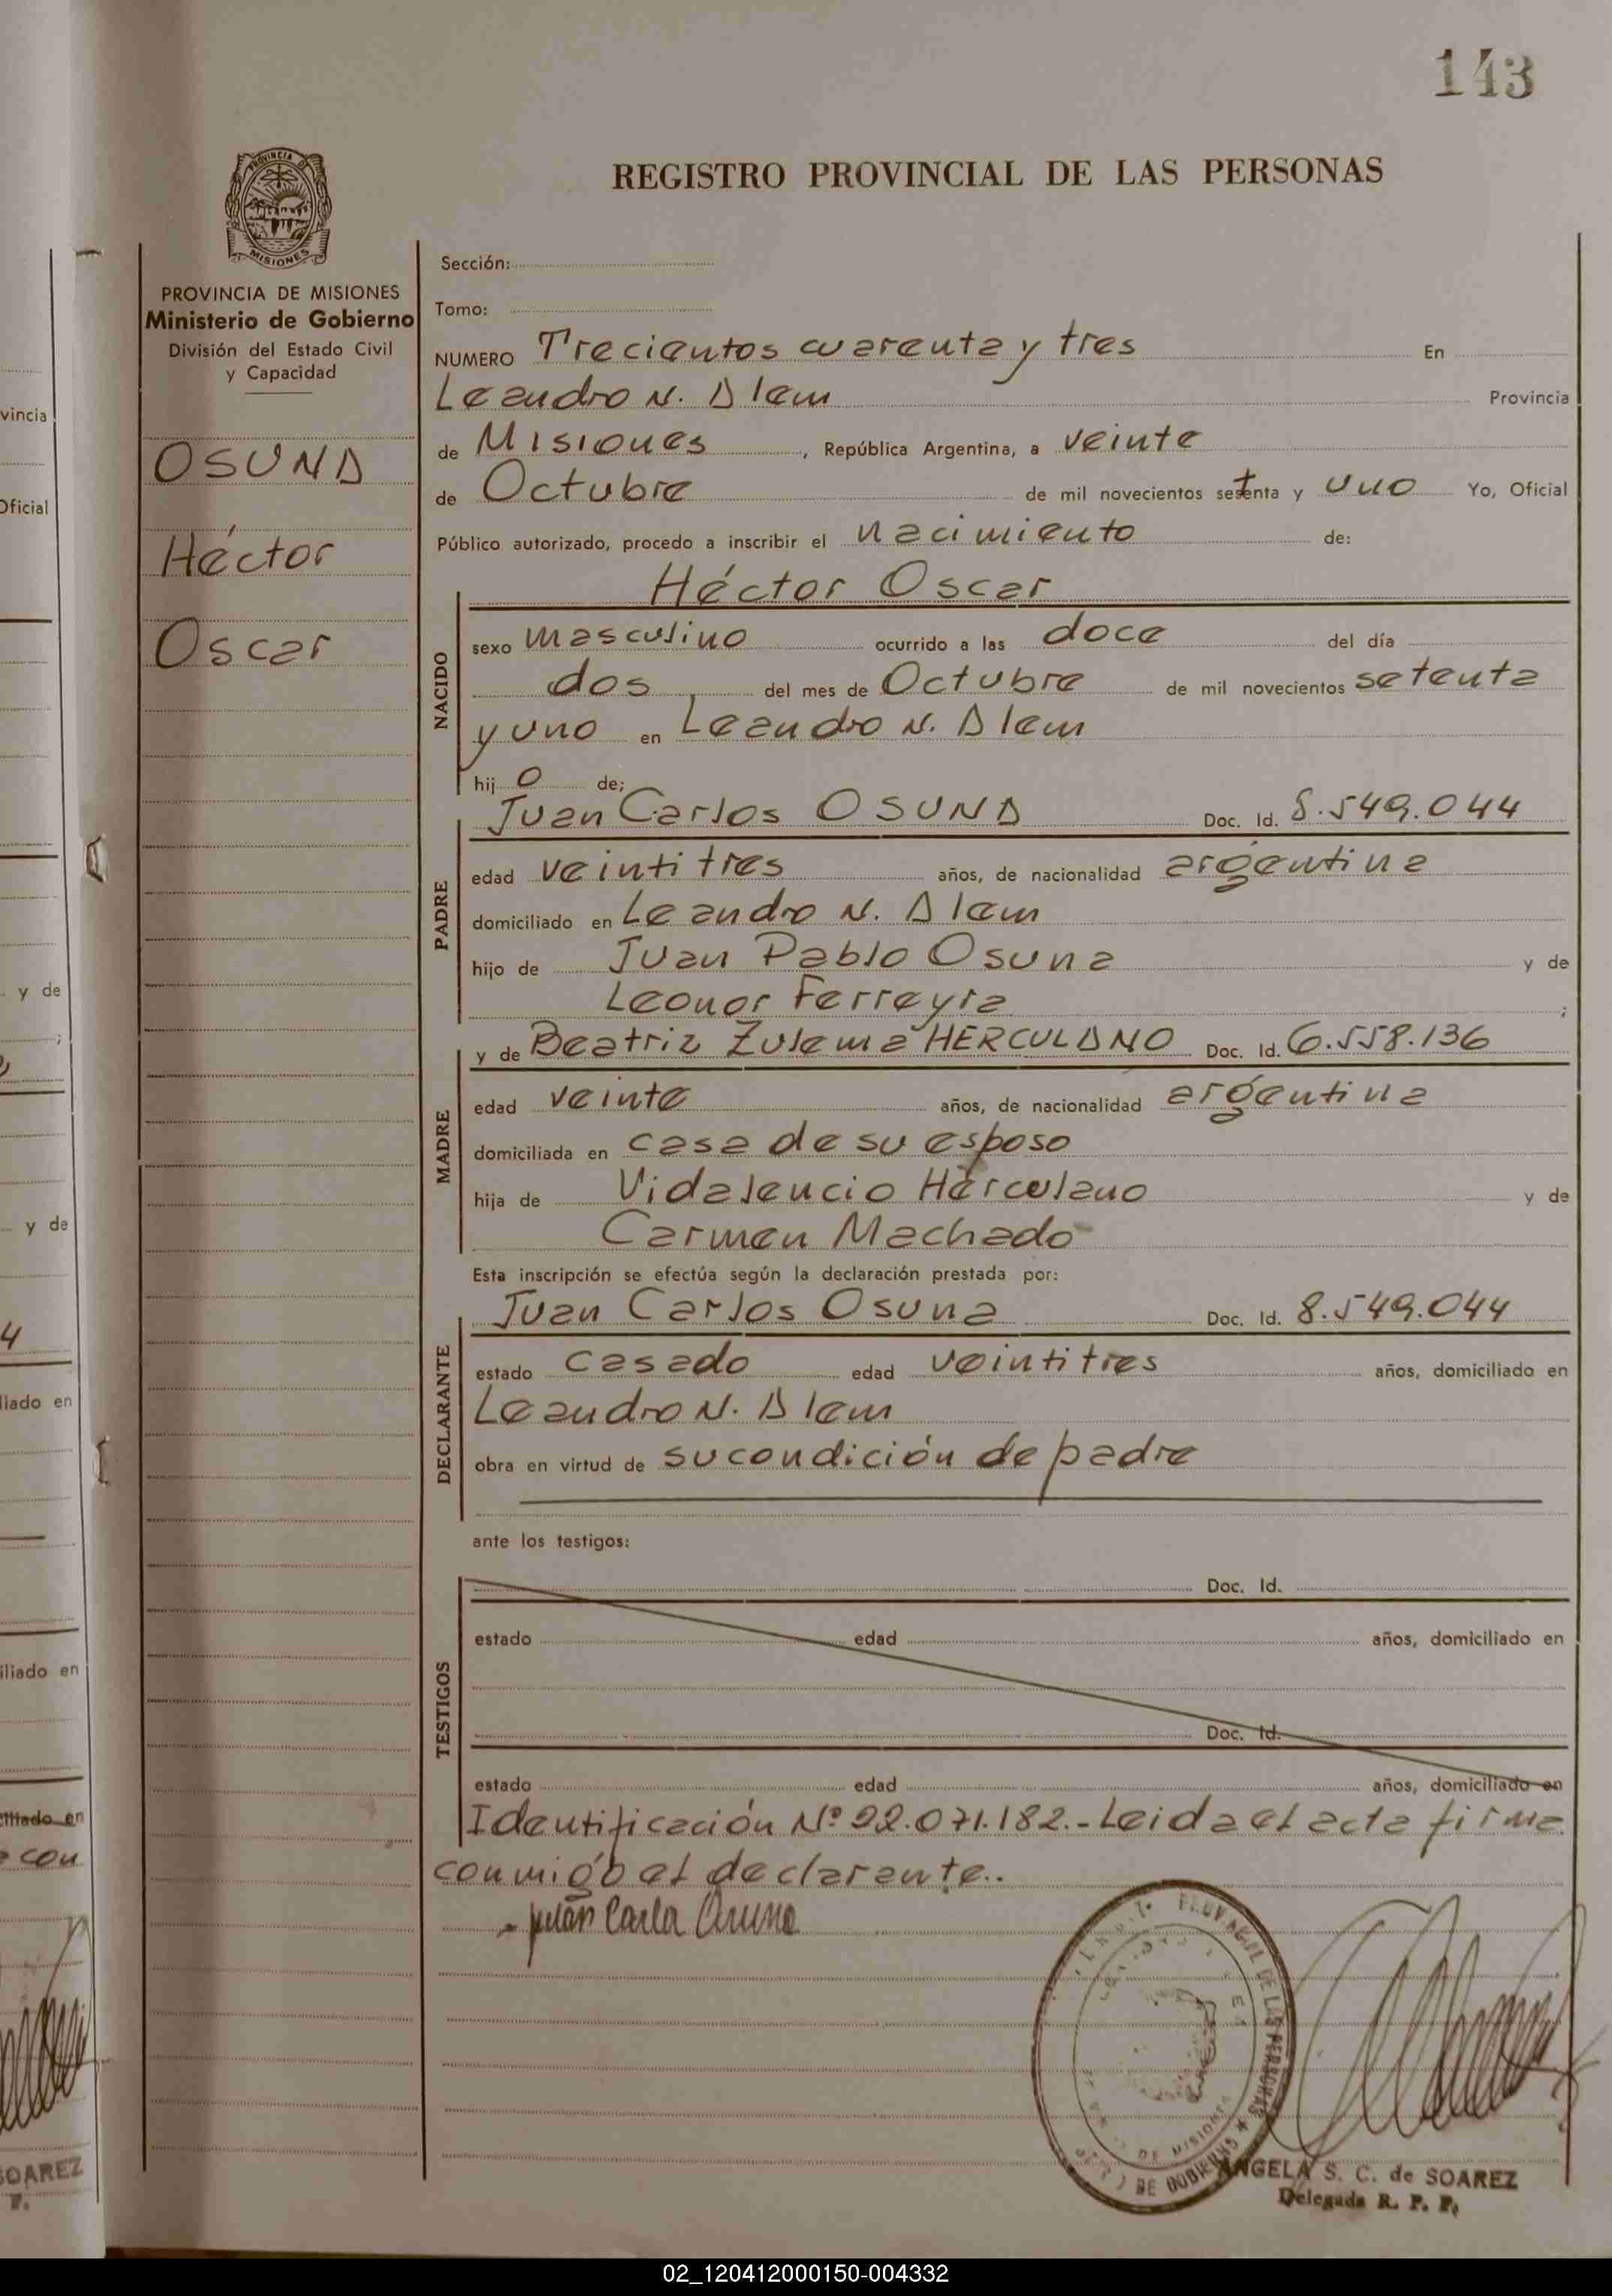 143
PROVINCIA DE MISIONES
REGISTRO PROVINCIAL DE LAS PERSONAS
PROVINCIA DE MISIONES
Ministerio de Gobierno
División del Estado Civil
y Capacidad
OSUNA
Héctor
Oscar
Sección:
Tomo:
NUMERO Trecientos cuarenta y tres En
Leandro N. Alem Provincia
de Misiones, República Argentina, a veinte
de Octubre de mil novecientos setenta y uno Yo, Oficial
Público autorizado, procedo a inscribir el nacimiento de:
Héctor Oscar
NACIDO
sexo masculino ocurrido a las doce del día
dos del mes de Octubre de mil novecientos setenta
y uno en Leandro N. Alem
hij o de;
Juan Carlos OSUNA Doc. Id. 8.549.044
PADRE
edad veintitres años, de nacionalidad argentina
domiciliado en Leandro N. Alem
hijo de Juan Pablo Osuna y de
Leonor Ferreyra ;
y de Beatriz Zulema HERCULANO Doc. Id. 6.558.136
MADRE
edad veinte años, de nacionalidad argentina
domiciliada en casa de su esposo
hija de Vidalencio Herculano y de
Carmen Machado
Esta inscripción se efectúa según la declaración prestada por:
Juan Carlos Osuna Doc. Id. 8.549.044
DECLARANTE
estado casado edad veintitres años, domiciliado en
Leandro N. Alem
obra en virtud de su condición de padre
ante los testigos:
Doc. Id.
TESTIGOS
estado edad años, domiciliado en
Doc. Id.
estado edad años, domiciliado en
Identificación Nº 22.071.182.- Leida el acta firma
conmigo el declarante..
ANGELA S. C. de SOAREZ
Delegada R. P. P.
02_120412000150-004332